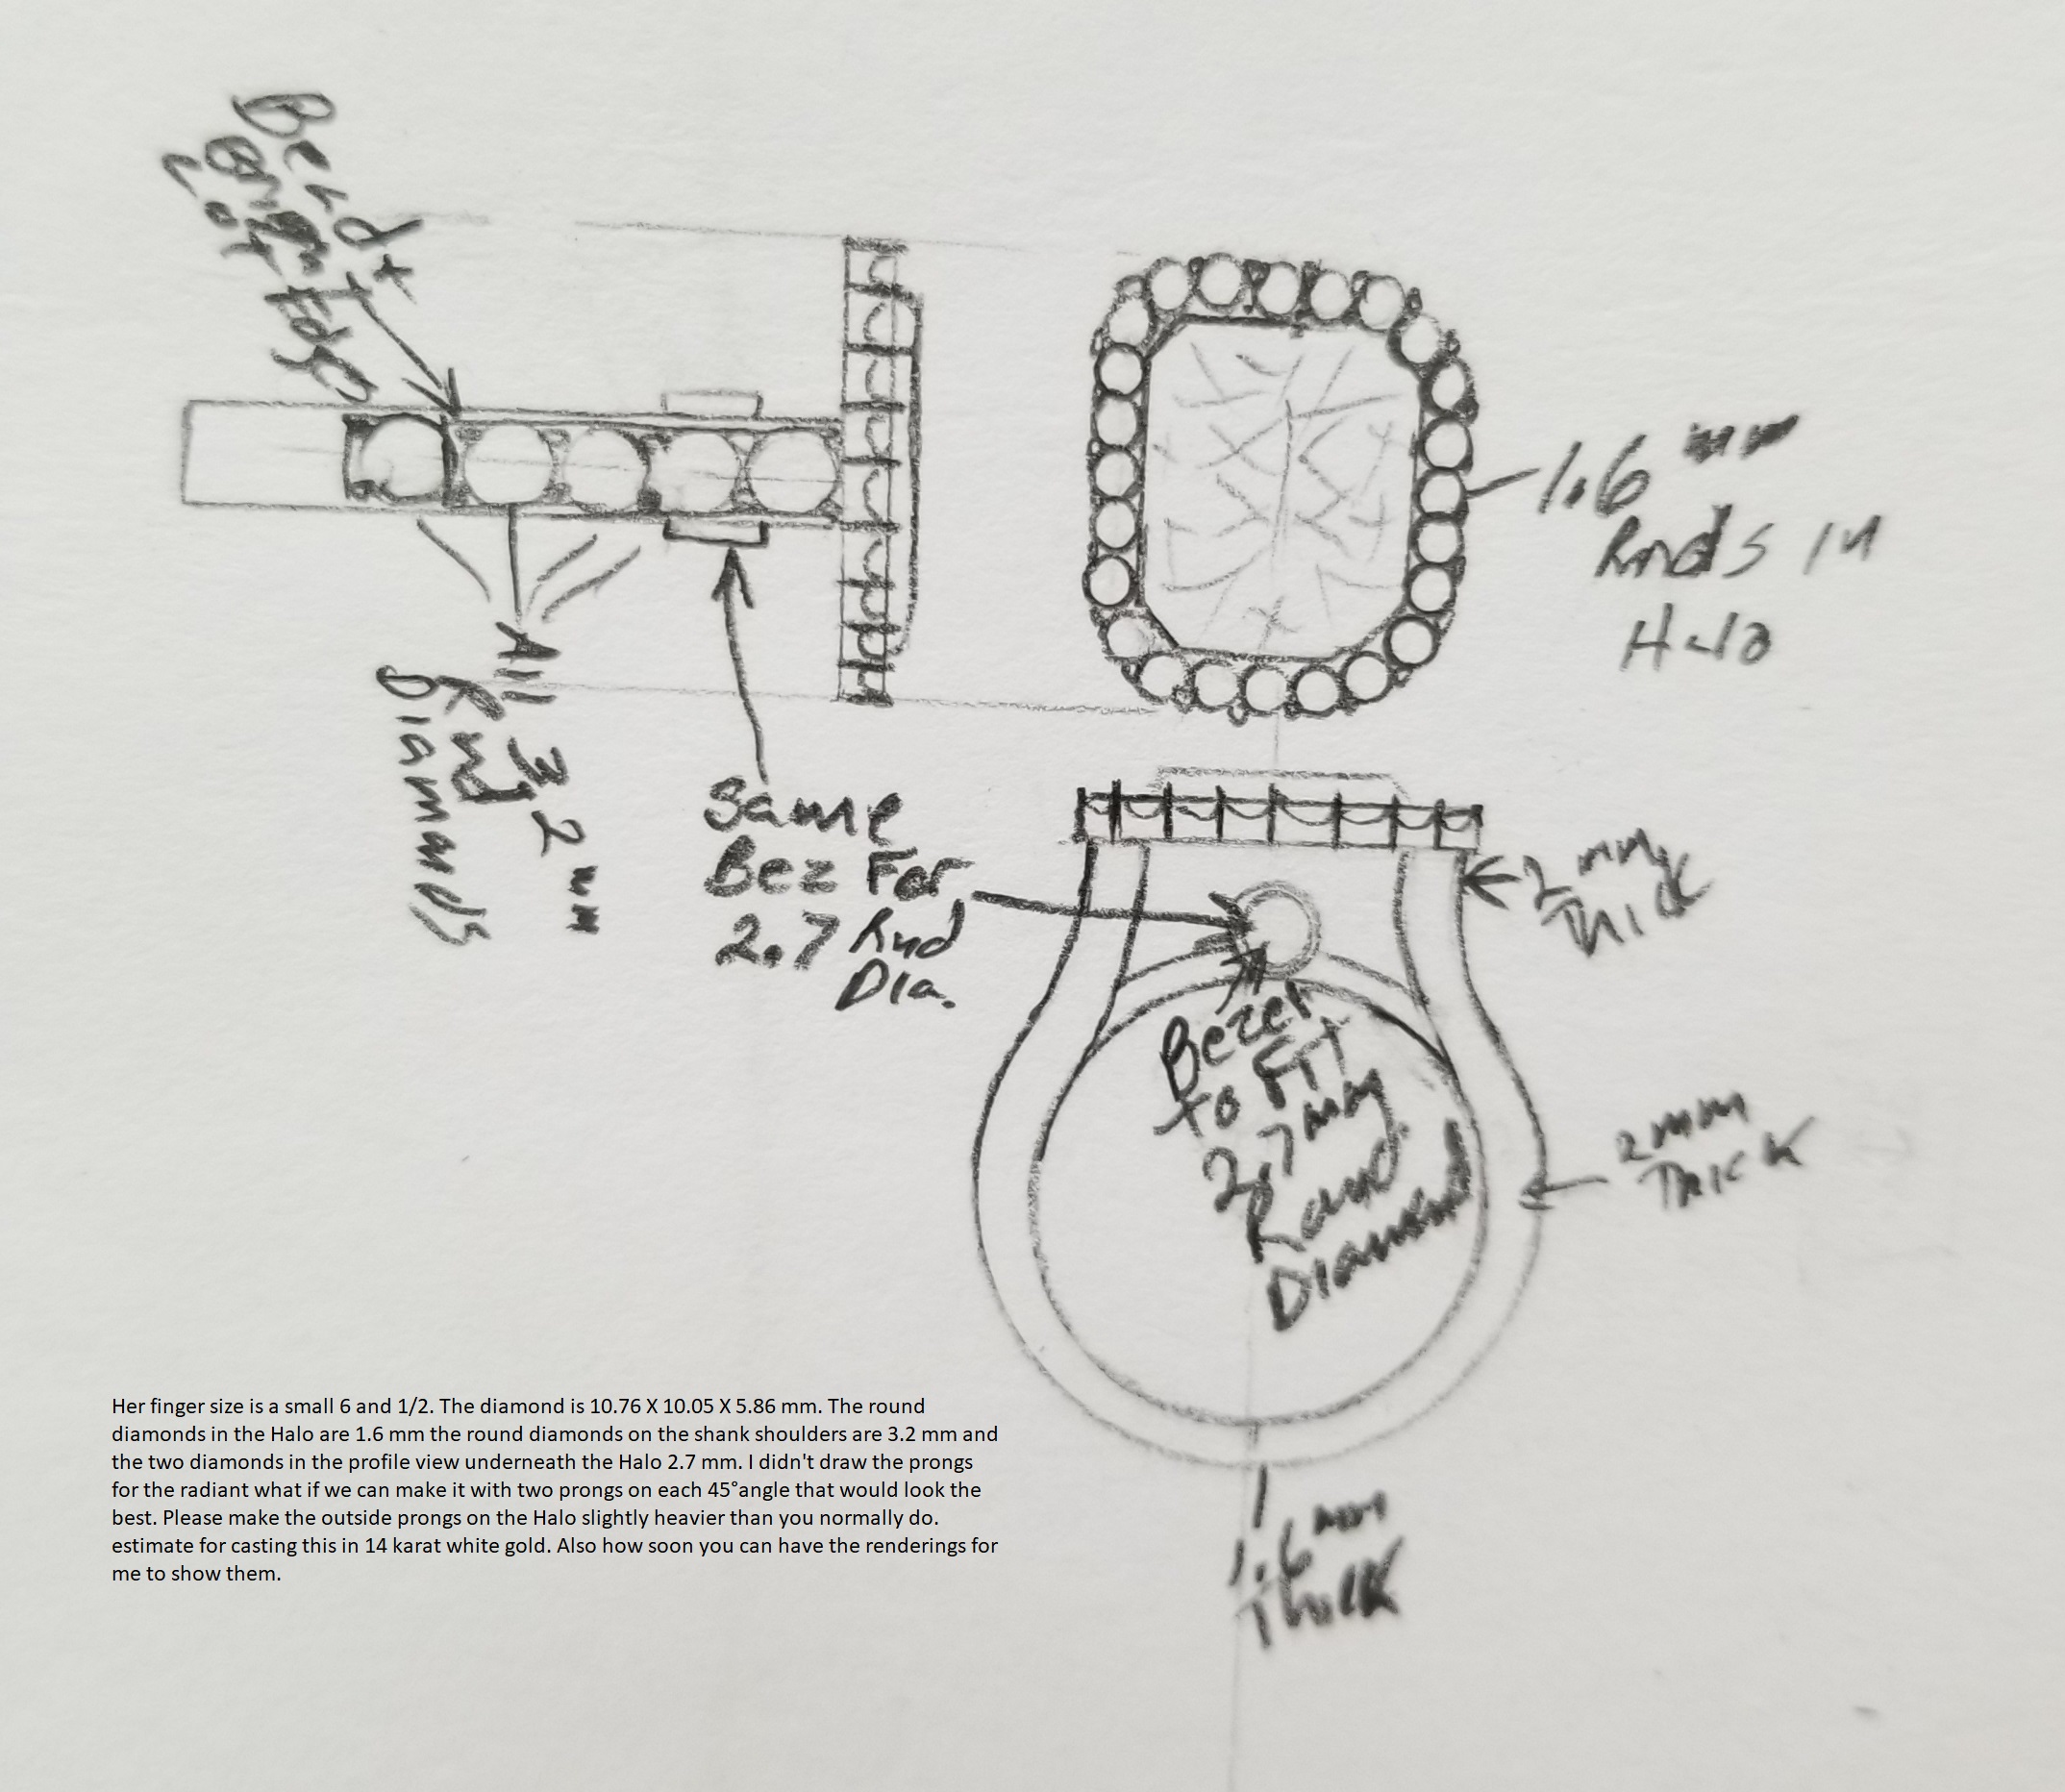 Bead +
Bright
Cut Edge
All 3.2 mm
Rnd
Diamonds
Same
Bez For
2.7 Rnd
Dia.
1.6 mm
Rnds in
Halo
2 mm
Thick
Bezel
to Fit
2.7 mm
Round
Diamond
2 mm
Thick
1.6 mm
Thick
Her finger size is a small 6 and 1/2. The diamond is 10.76 X 10.05 X 5.86 mm. The round
diamonds in the Halo are 1.6 mm the round diamonds on the shank shoulders are 3.2 mm and
the two diamonds in the profile view underneath the Halo 2.7 mm. I didn't draw the prongs
for the radiant what if we can make it with two prongs on each 45°angle that would look the
best. Please make the outside prongs on the Halo slightly heavier than you normally do.
estimate for casting this in 14 karat white gold. Also how soon you can have the renderings for
me to show them.